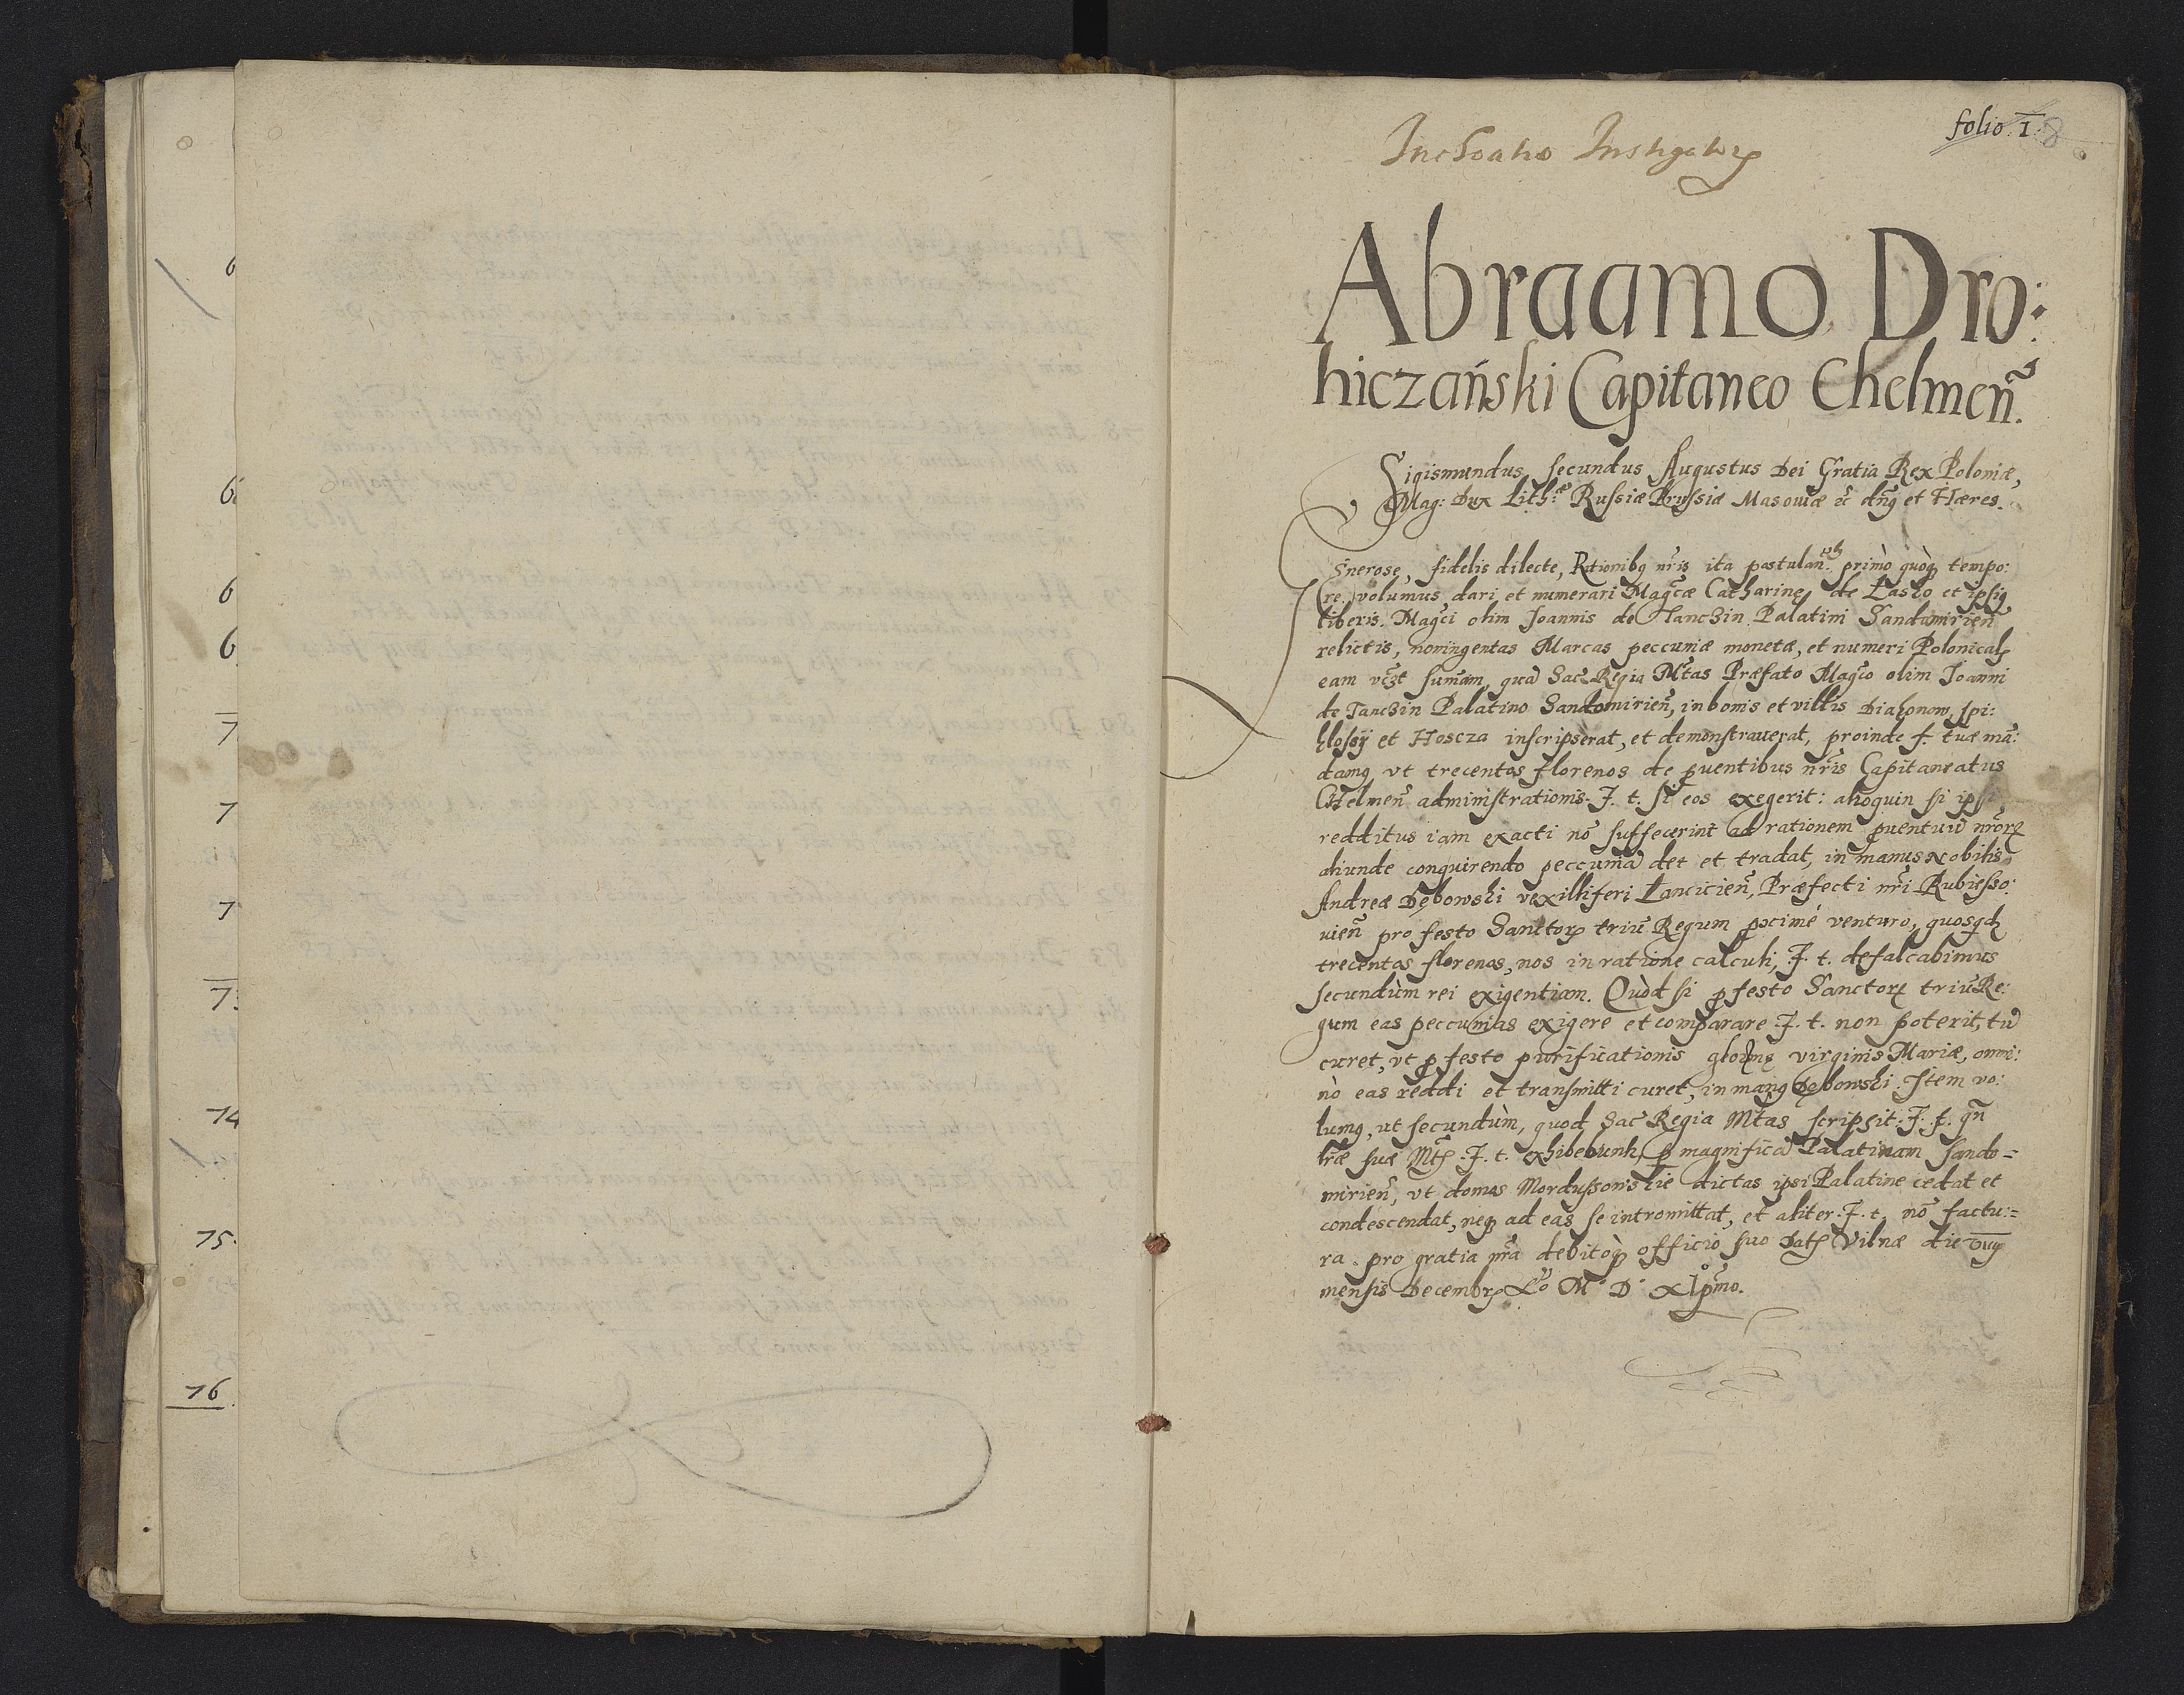 6
6
6
6
7
7
7
7
74
75.
76
folio. 1. 8
Inchoatio
Abraamo Dro:
hiczański Capitaneo Chelmeñ.
Sigismundus secundus Augustus Dei Gratia Rex Poloniæ,
Mag: Dux Lith:æ Russiæ Prussiæ Masouiæ et et Hæres.
Generose, fidelis dilecte, Rationibꝫ nr̃is ita postulan: primò quòqꝫ tempo:
re. volumus dari et numerari Magcæ Catharinę de Lasko et ipsiꝰ
liberis. Magci olim Joannis de Tanczin Palatini Sandomirieñ
relictis, noningentas Marcas peccuniæ monetæ, et numeri Polonicał
eam sum̃am, quã Sac̃ Regia Mtas Præfato Magco olim Joanni
de Tanczin Palatino Sandomirieñ, in bonis et villis Diakonow, Spi:
klossÿ et Hoscza inscripserat, et demonstrauerat, proinde f. tuæ mã:
damꝰ vt trecentos florenos de ꝓuentibus nr̃is Capitaneatus
Chelmeñ administrationis. F. t. si eos exegerit: alioquin si ipsi
redditus iam exacti nõ suffecerint ad rationem ꝓuentuũ nr̃orꝝ
aliunde conquirendo peccuniã det et tradat, in manus Nobilis
Andreæ Dębowski vexilliferi Lancicieñ, Præfecti nr̃i Rubiesso:
uieñ pro festo Sanctorꝝ triũ Regum ꝓximè venturo, quosqꝫ
trecentos florenos, nos in ratione calculi, F. t. defalcabimus
secundùm rei exigentiam. Quòd si ꝓ festo Sanctorꝝ triũ Re:
gum eas peccunias exigere et comparare F. t. non poterit, tũ
curet, vt ꝓ festo purificationis virginis Mariæ, omni:
nò eas reddi et transmitti curet, in manꝰ Dębowski. Item vo:
lumꝰ, ut secundùm, quod Sac̃ Regia Mtas scripsit F. t. qñ
lr̃æ suæ Mtis F. t. exhibebunt, ꝑ magnificã Palatinam Sando=
mirieñ, vt domos dictas ipsi Palatinæ cedat et
condescendat, neqꝫ ad eas se intromittat, et aliter F. t. nõ factu:=
ra. pro gratia nr̃a debitòqꝫ officio suo Datꝭ Vilnæ die
mensis Decembrꝭ Mº Dº